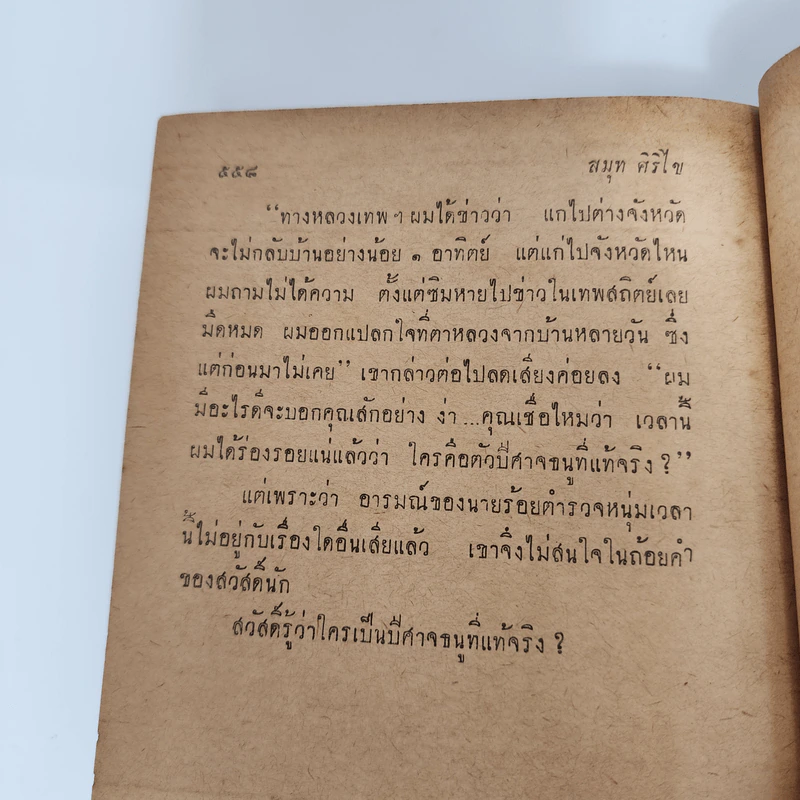 ๕๕๘ สมุท ศิริไข
“ทางหลวงเทพ ฯ ผมได้ข่าวว่า แกไปต่างจังหวัด
จะไม่กลับบ้านอย่างน้อย ๑ อาทิตย์ แต่แกไปจังหวัดไหน
ผมถามไม่ได้ความ ตั้งแต่ซิมหายไปข่าวในเทพสถิตย์เลย
มืดหมด ผมออกแปลกใจที่ตาหลวงจากบ้านหลายวัน ซึ่ง
แต่ก่อนมาไม่เคย” เขากล่าวต่อไปลดเสียงค่อยลง “ผม
มีอะไรดีจะบอกคุณสักอย่าง ง่า ...คุณเชื่อไหมว่า เวลานี้
ผมได้ร่องรอยแน่แล้วว่า ใครคือตัวปีศาจธนูที่แท้จริง ?”
แต่เพราะว่า อารมณ์ของนายร้อยตำรวจหนุ่มเวลา
นี้ไม่อยู่กับเรื่องใดอื่นเสียแล้ว เขาจึงไม่สนใจในถ้อยคำ
ของสวัสดิ์นัก
สวัสดิ์รู้ว่าใครเป็นปีศาจธนูที่แท้จริง ?